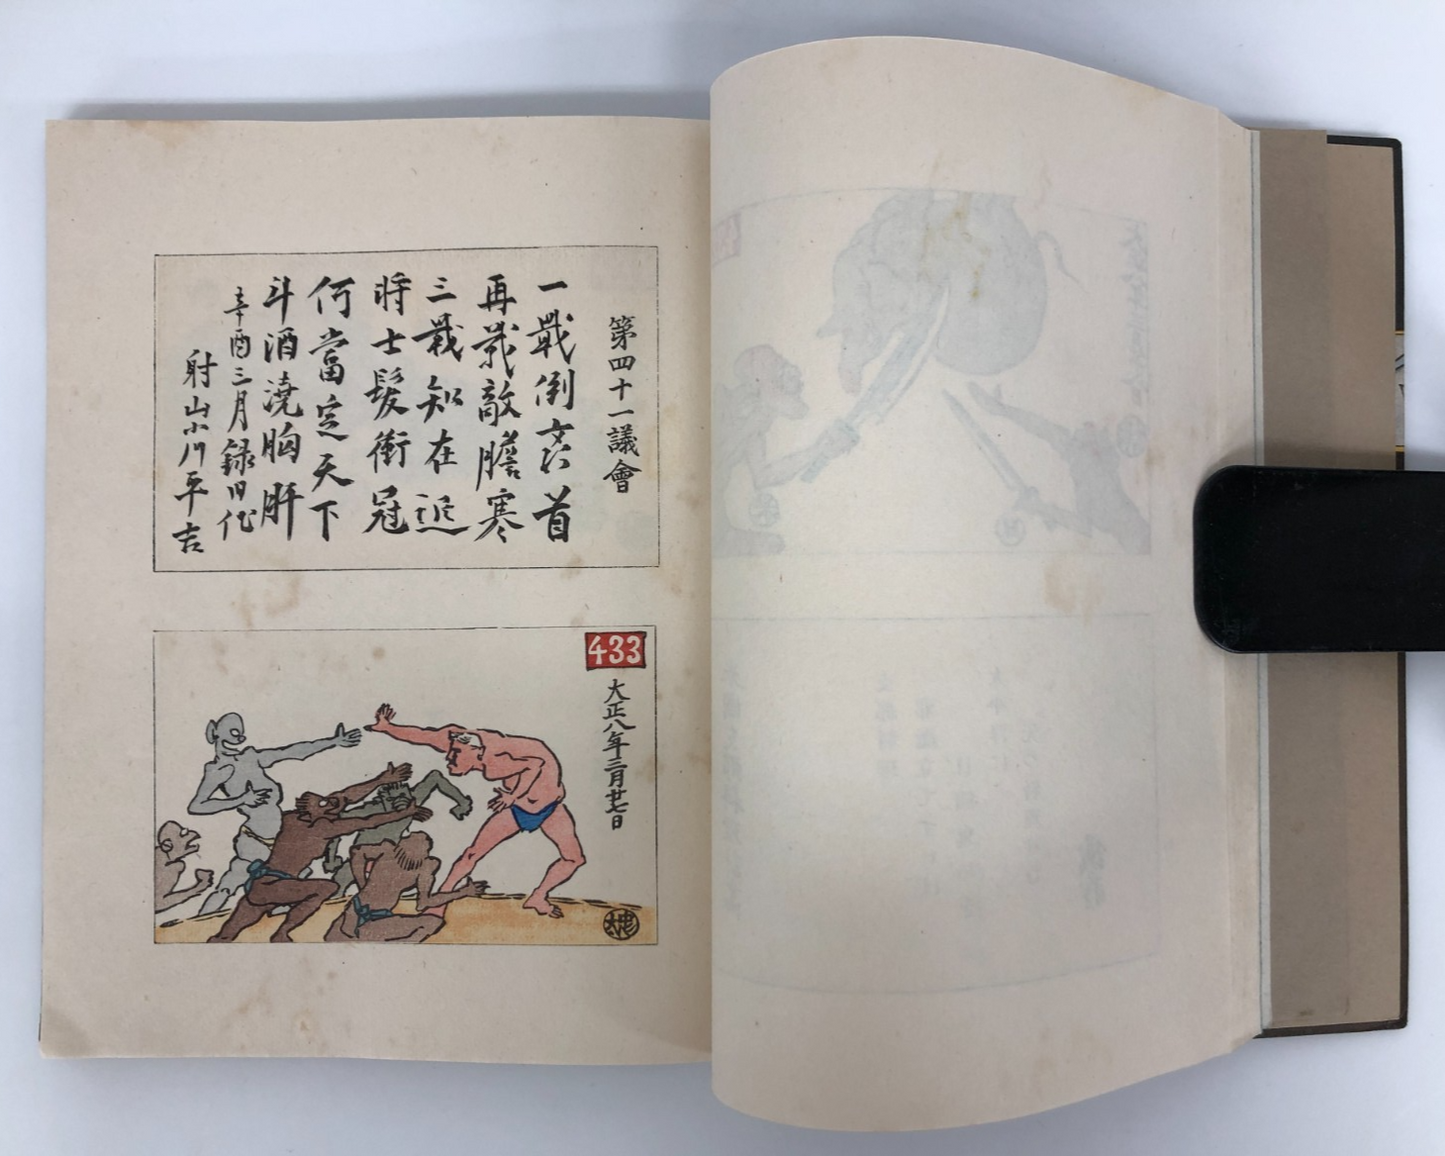 第四十一議會
一戰倒首
再戰敵膽寒
三戰知在邇
将士髮衝冠
何當定天下
斗酒澆胸肝
辛酉三月録旧作
射山小川平吉
433
大正八年三月廿七日
忠太